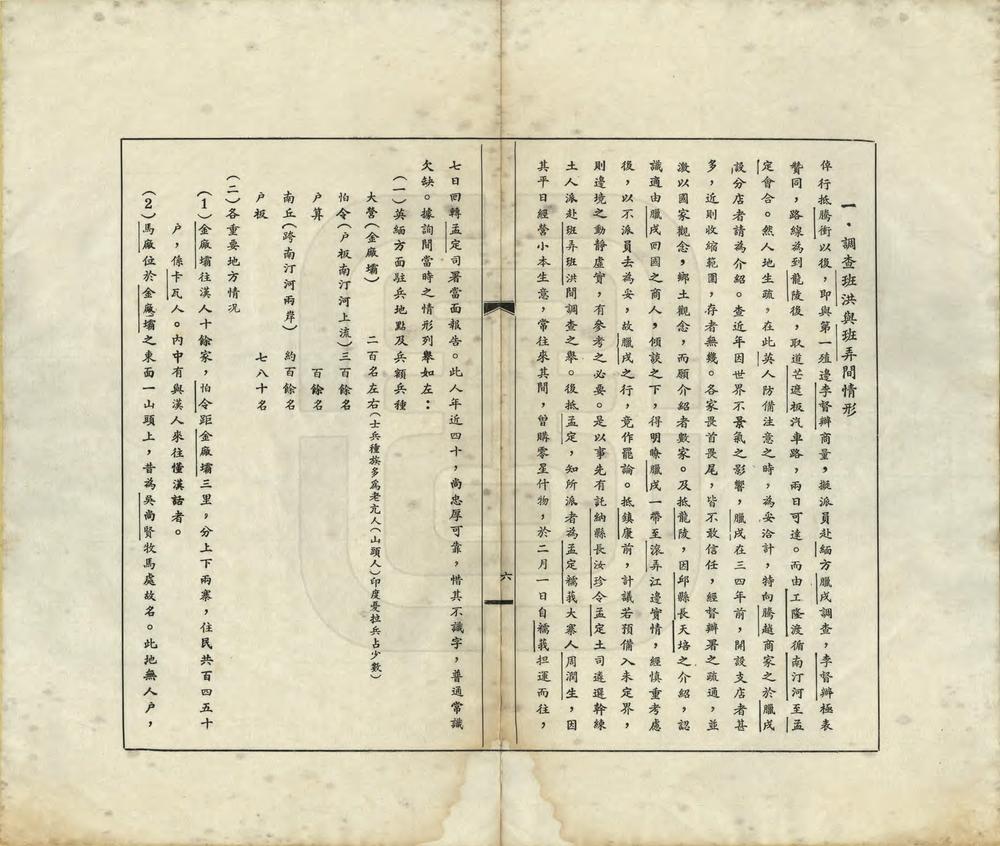 一．調查班洪與班弄間情形
倖行抵騰衝以後，即與第一殖邊李督辦商量，擬派員赴緬方臘戍調查，李督辦極表
贊同，路線為到龍陵後，取道芒遮板汽車路，兩日可達。而由工隆渡循南汀河至孟
定會合。然人地生疏，在此英人防備注意之時，為妥洽計，特向騰越商家之於臘戍
設分店者請為介紹。查近年因世界不景氣之影響，臘戍在三四年前，開設支店者甚
多，近則收縮範圍，存者無幾。各家畏首畏尾，皆不敢信任，經督辦署之疏通，並
激以國家觀念，鄉土觀念，而願介紹者數家。及抵龍陵，因邱縣長天培之介紹，認
識適由臘戍回國之商人，傾談之下，得明瞭臘戍一帶至滾弄江邊實情，經慎重考慮
後，以不派員去為妥，故臘戍之行，竟作罷論。抵鎮康前，計議若預備入未定界，
則邊境之動靜虛實，有參考之必要。是以事先有託納縣長汝珍令孟定土司遴選幹練
土人派赴班弄班洪間調查之舉。後抵孟定，知所派者為孟定糯莪大寨人周潤生，因
其平日經營小本生意，常往來其間，曾購零星什物，於二月一日自糯莪担運而往，
六
七日回轉孟定司署當面報告。此人年近四十，尚忠厚可靠，惜其不識字，普通常識
欠缺。據詢問當時之情形列舉如左：
（一）英緬方面駐兵地點及兵額兵種
大營（金廠壩） 二百名左右（士兵種族多為老亢人（山頭人）印度戛拉兵占少數）
怕令（戶板南汀河上流）三百餘名
戶算 百餘名
南丘（跨南汀河兩岸） 約百餘名
戶板 七八十名
（二）各重要地方情况
（1）金廠壩往漢人十餘家，怕令距金廠壩三里，分上下兩寨，住民共百四五十
戶，係卡瓦人。內中有與漢人來往懂漢話者。
（2）馬廠位於金廠壩之東面一山頭上，昔為吳尚賢牧馬處故名。此地無人户，